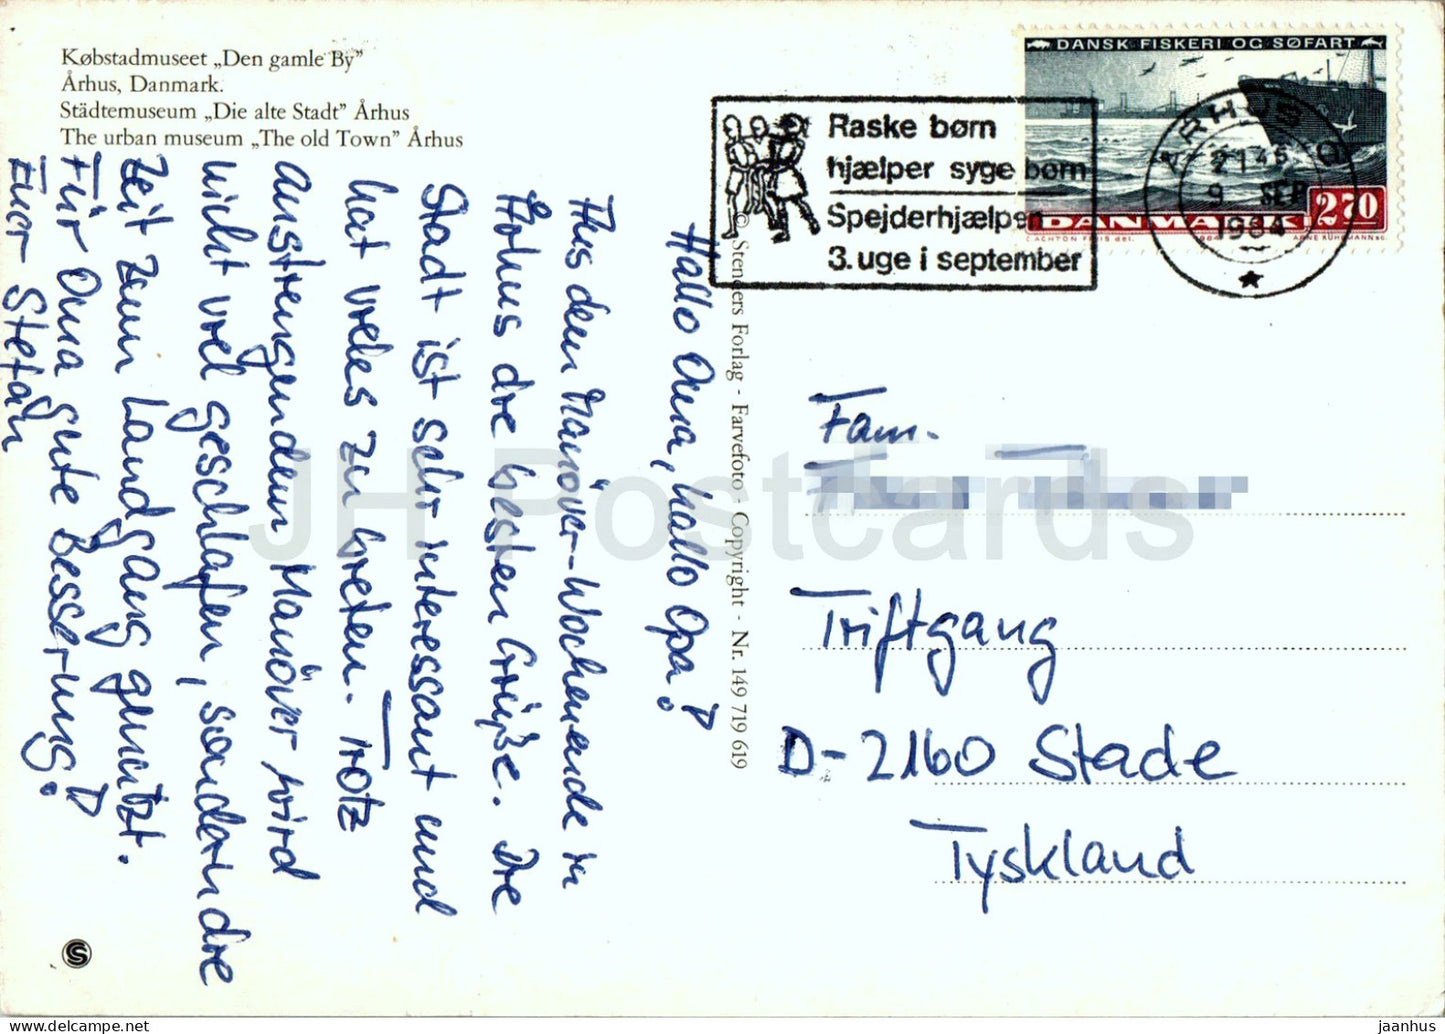 Købstadmuseet „Den gamle By”
Århus, Danmark.
Städtemuseum „Die alte Stadt” Århus
The urban museum „The old Town” Århus
Hallo Oma, hallo Opa!
Aus dem Manöver-Wochenende in
Århus die besten Grüße. Die
Stadt ist sehr interessant und
hat vieles zu bieten. Trotz
anstrengendem Manöver wird
nicht viel geschlafen, sondern die
Zeit zum Landgang genutzt.
Für Oma gute Besserung!
Euer Stefan
© Stenders Forlag - Farvefoto - Copyright - Nr. 149 719 619
Raske børn
hjælper syge børn
Spejderhjælpen
3. uge i september
DANSK FISKERI OG SØFART
DANMARK 270
ACHTON FRIIS del.
ARNE KÜHLMANN sc.
ÅRHUS C
2145
9 SEP
1984
Fam.
Triftgang
D-2160 Stade
Tyskland
S
JH Postcards
https://www.delcampe.net
jaanhus